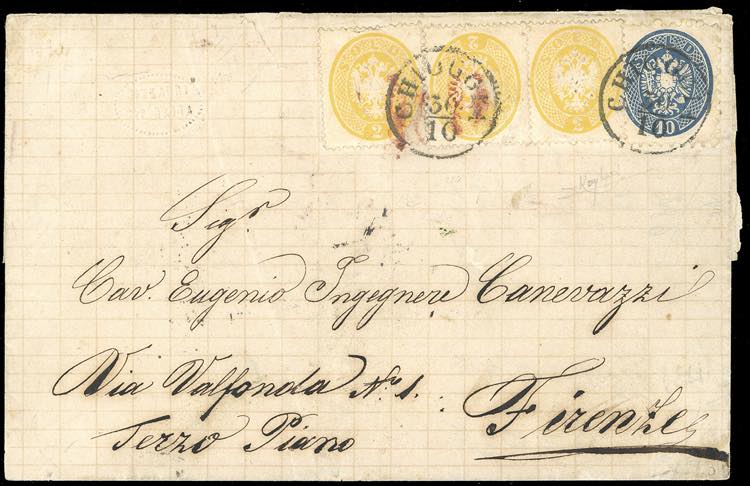 CHIOGGIA
30
10
10
Sigr
Cav. Eugenio Ingegnere Canevazzi
Via Valfonda No 1.
Terzo Piano
Firenze